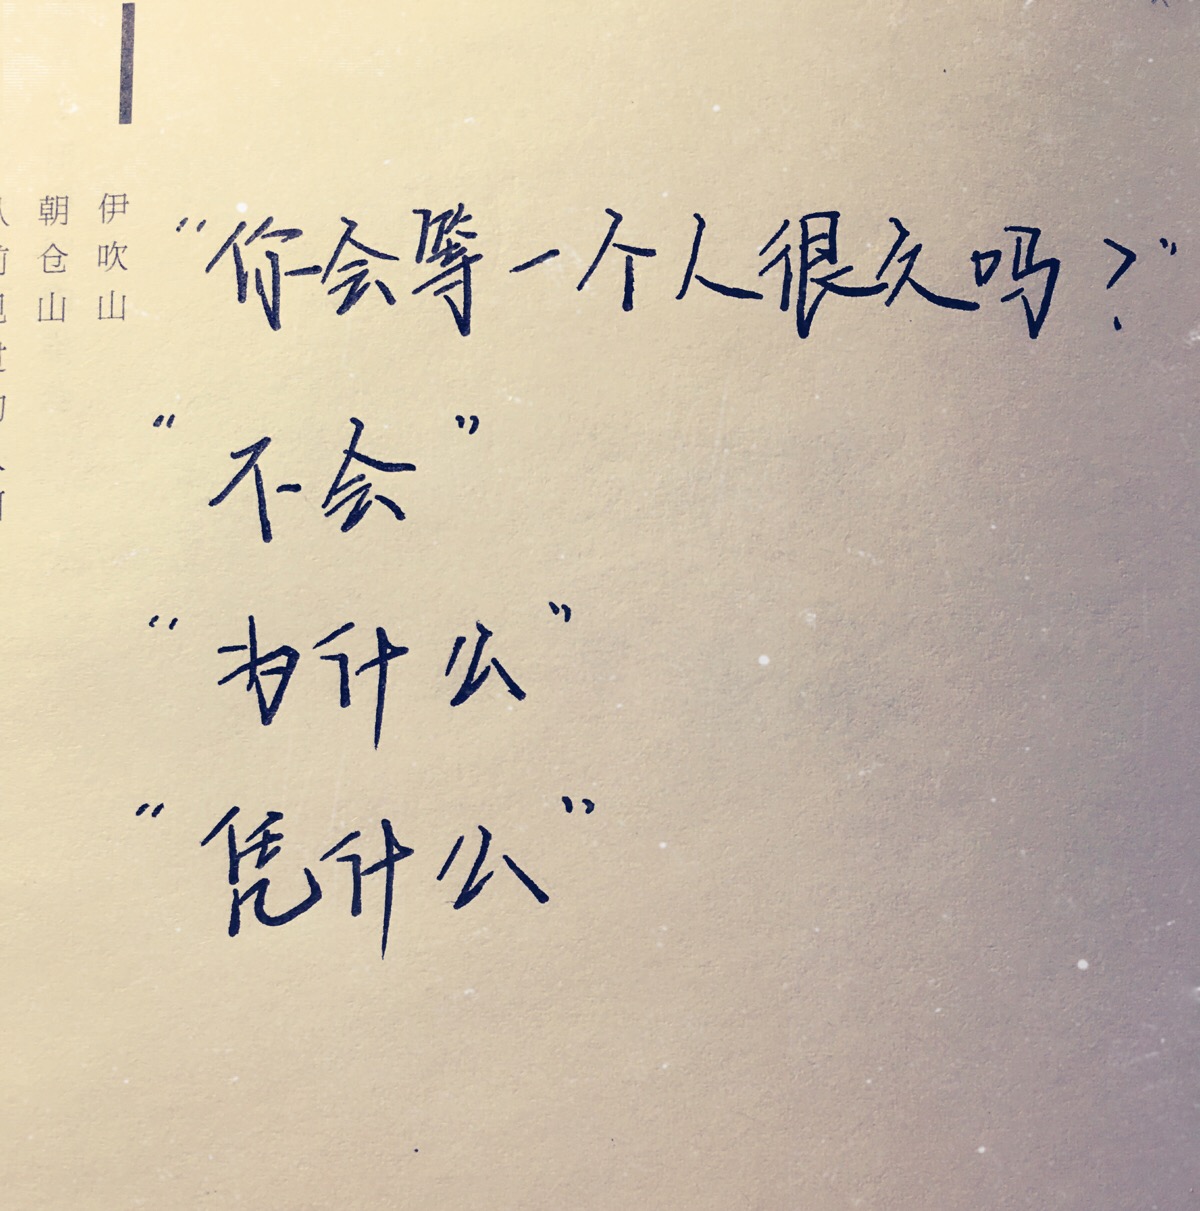 “你会等一个人很久吗？”
“不会”
“为什么”
“凭什么”
伊吹山
朝仓山